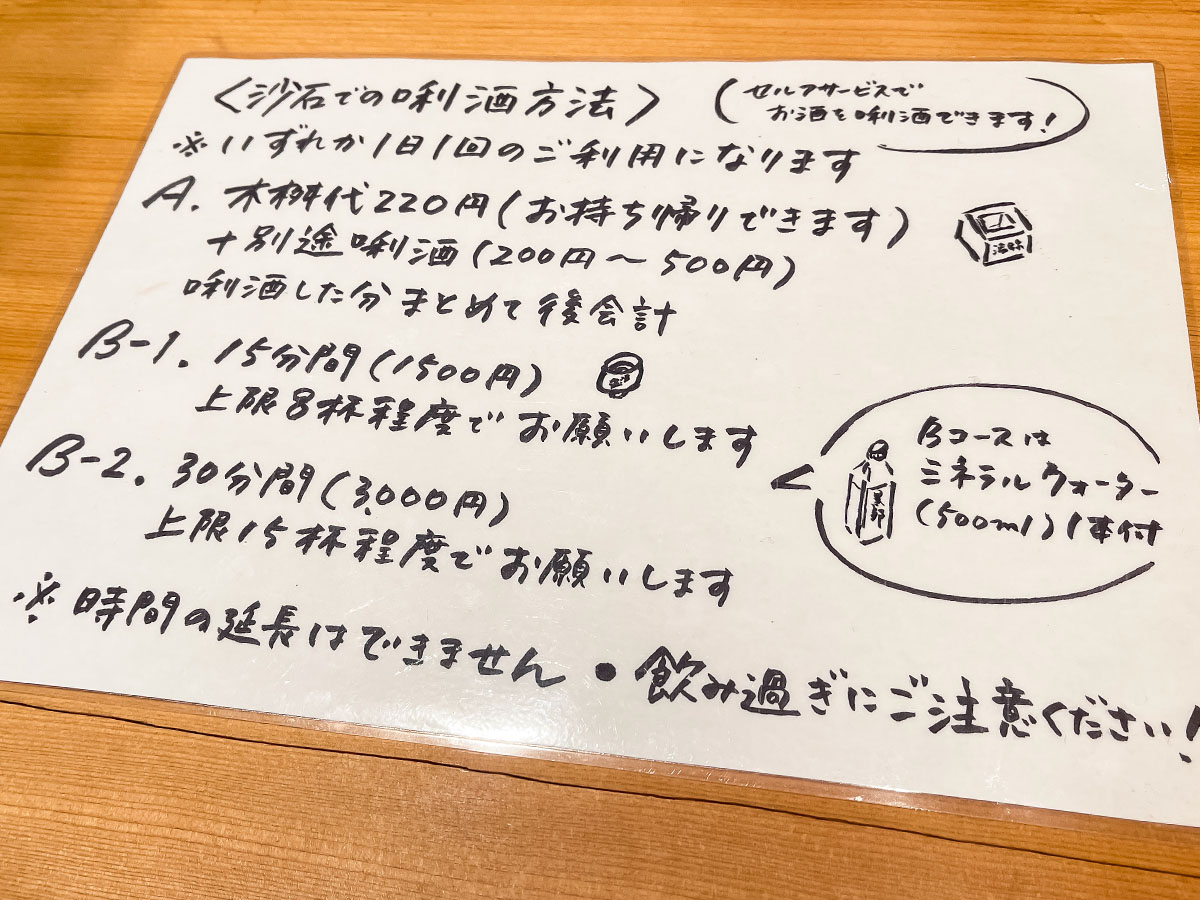 〈沙石での唎酒方法〉
(セルフサービスで
お酒を唎酒できます!)
※いずれか1日1回のご利用になります
A. 木桝代220円(お持ち帰りできます)
+別途唎酒(200円〜500円)
唎酒した分まとめて後会計
B-1. 15分間(1500円)
上限8杯程度でお願いします
B-2. 30分間(3,000円)
上限15杯程度でお願いします
Bコースは
ミネラルウォーター
(500ml)1本付
※時間の延長はできません・飲み過ぎにご注意ください!